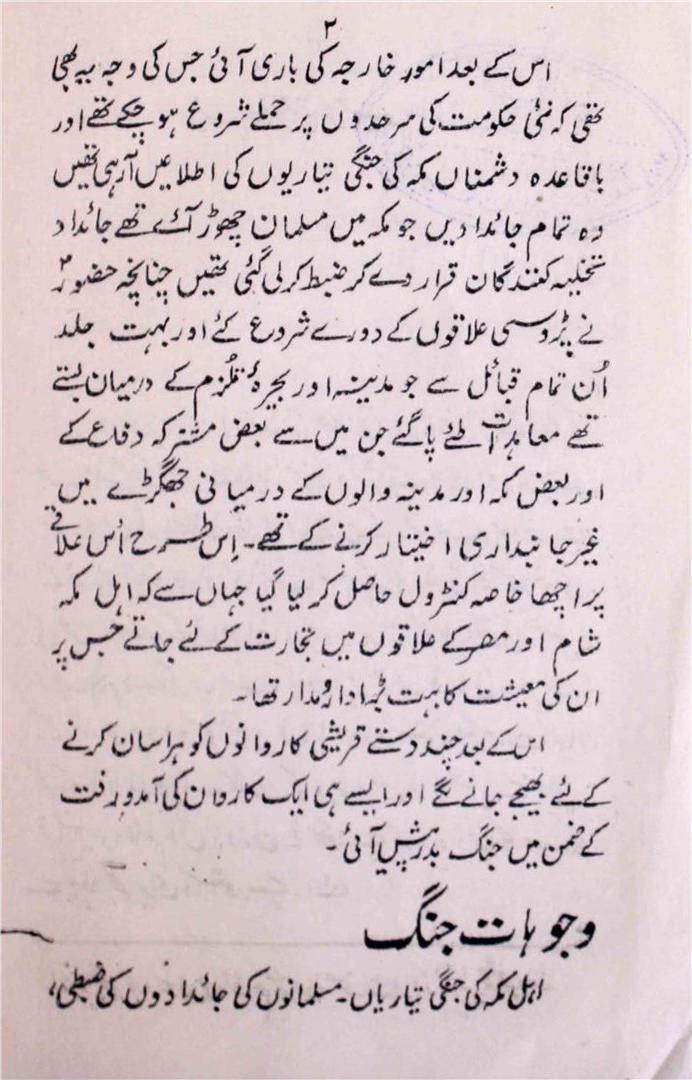 ۲
اس کے بعد امور خارجہ کی باری آئی جس کی وجہ یہ بھی
تھی کہ نئی حکومت کی سرحدوں پر حملے شروع ہو چکے تھے اور
باقاعدہ دشمناں مکہ کی جنگی تیاریوں کی اطلاعیں آرہی تھیں
وہ تمام جائدادیں جو مکہ میں مسلمان چھوڑ آئے تھے جائداد
تخلیہ کنندگان قرار دے کر ضبط کرلی گئی تھیں چنانچہ حضورؐ
نے پڑوسی علاقوں کے دورے شروع کئے اور بہت جلد
اُن تمام قبائل سے جو مدینہ اور بحیرۂ قلزم کے درمیان بستے
تھے معاہدات طئے پاگئے جن میں سے بعض مشترکہ دفاع کے
اور بعض مکہ اور مدینہ والوں کے درمیانی جھگڑے میں
غیر جانبداری اختیار کرنے کے تھے۔ اِس طرح اُس علاقے
پر اچھا خاصہ کنٹرول حاصل کر لیا گیا جہاں سے کہ اہل مکہ
شام اور مصر کے علاقوں میں تجارت کے لئے جاتے جس پر
ان کی معیشت کا بہت بڑا دار و مدار تھا۔
اس کے بعد چند دستے قریشی کاروانوں کو ہراسان کرنے
کے لئے بھیجے جانے لگے اور ایسے ہی ایک کاروان کی آمدورفت
کے ضمن میں جنگ بدر پیش آئی۔
وجوہات جنگ
اہل مکہ کی جنگی تیاریاں۔ مسلمانوں کی جائدادوں کی ضبطی،